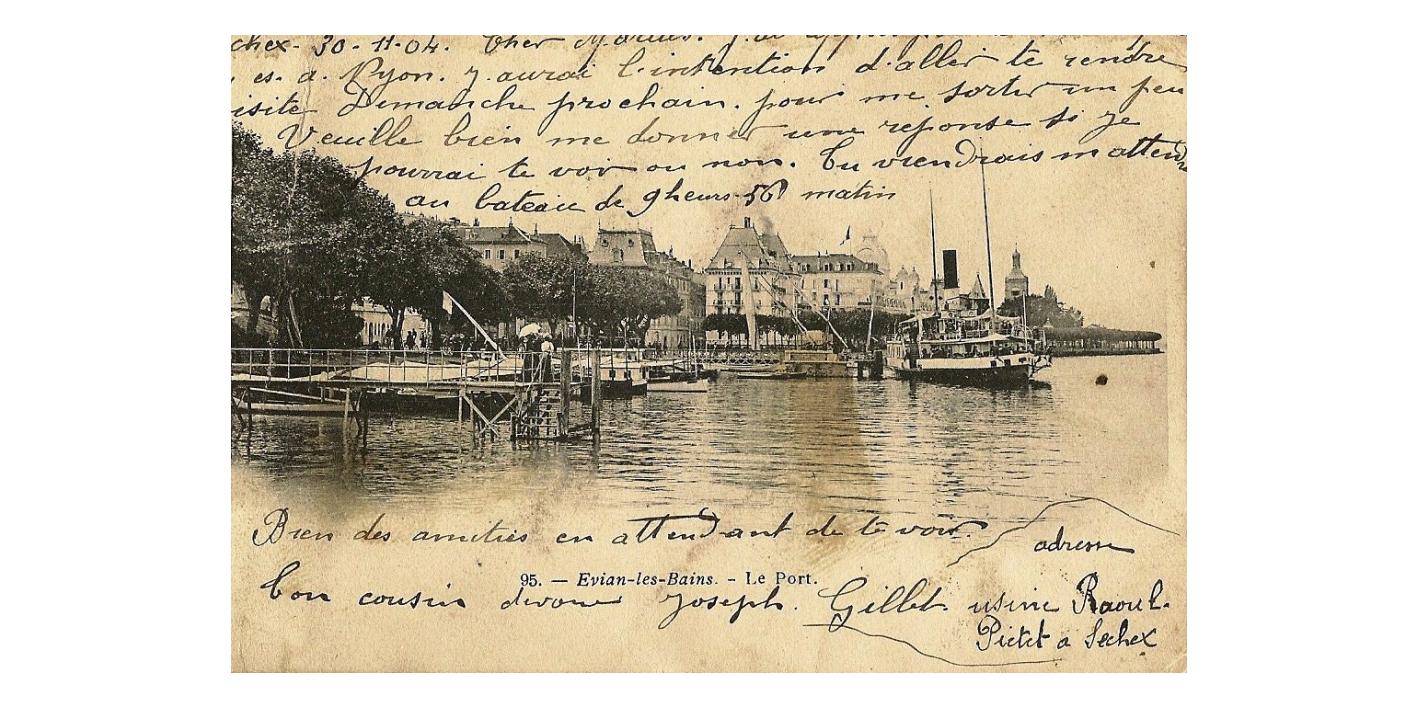 chex. 30-11-04. Cher Marius. J'ai
es. a. Nyon. J. aurai l'intention d'aller te rendre
isite Dimanche prochain. pour me sortir un peu
Veuille bien me donner une reponse si je
pourrai te voir ou non. Tu viendrais m attendre
au bateau de 9 heurs 56 matin
Bien des amitiés en attendant de te voir.
adresse
95. — Evian-les-Bains. - Le Port.
Ton cousin devoué Joseph. Gillet usine Raoul.
Pictet a Sechex